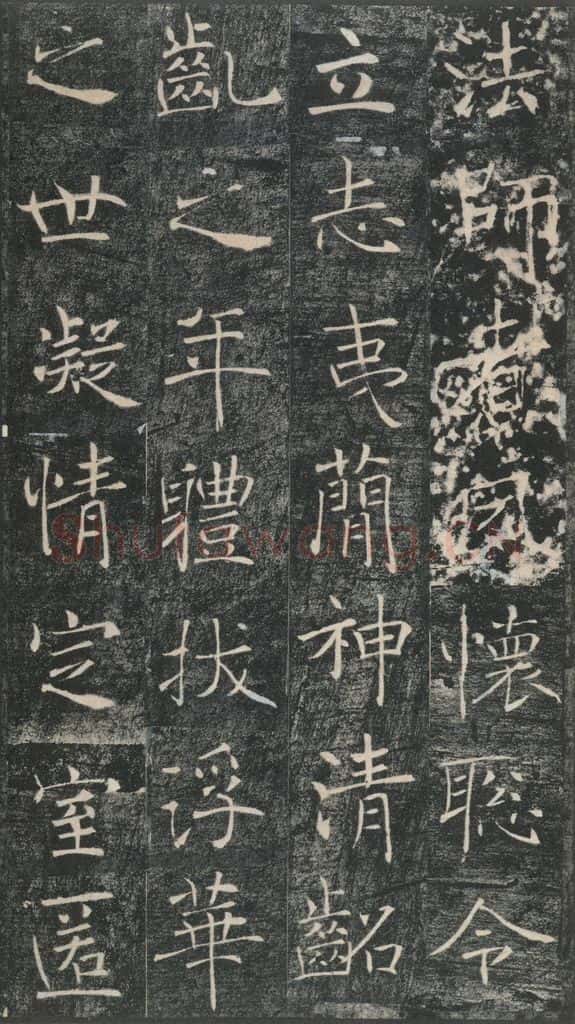 法師懷聰令
立志夷簡神清齠
齔之年體拔浮華
之世凝情定室匿
shufawang.cn